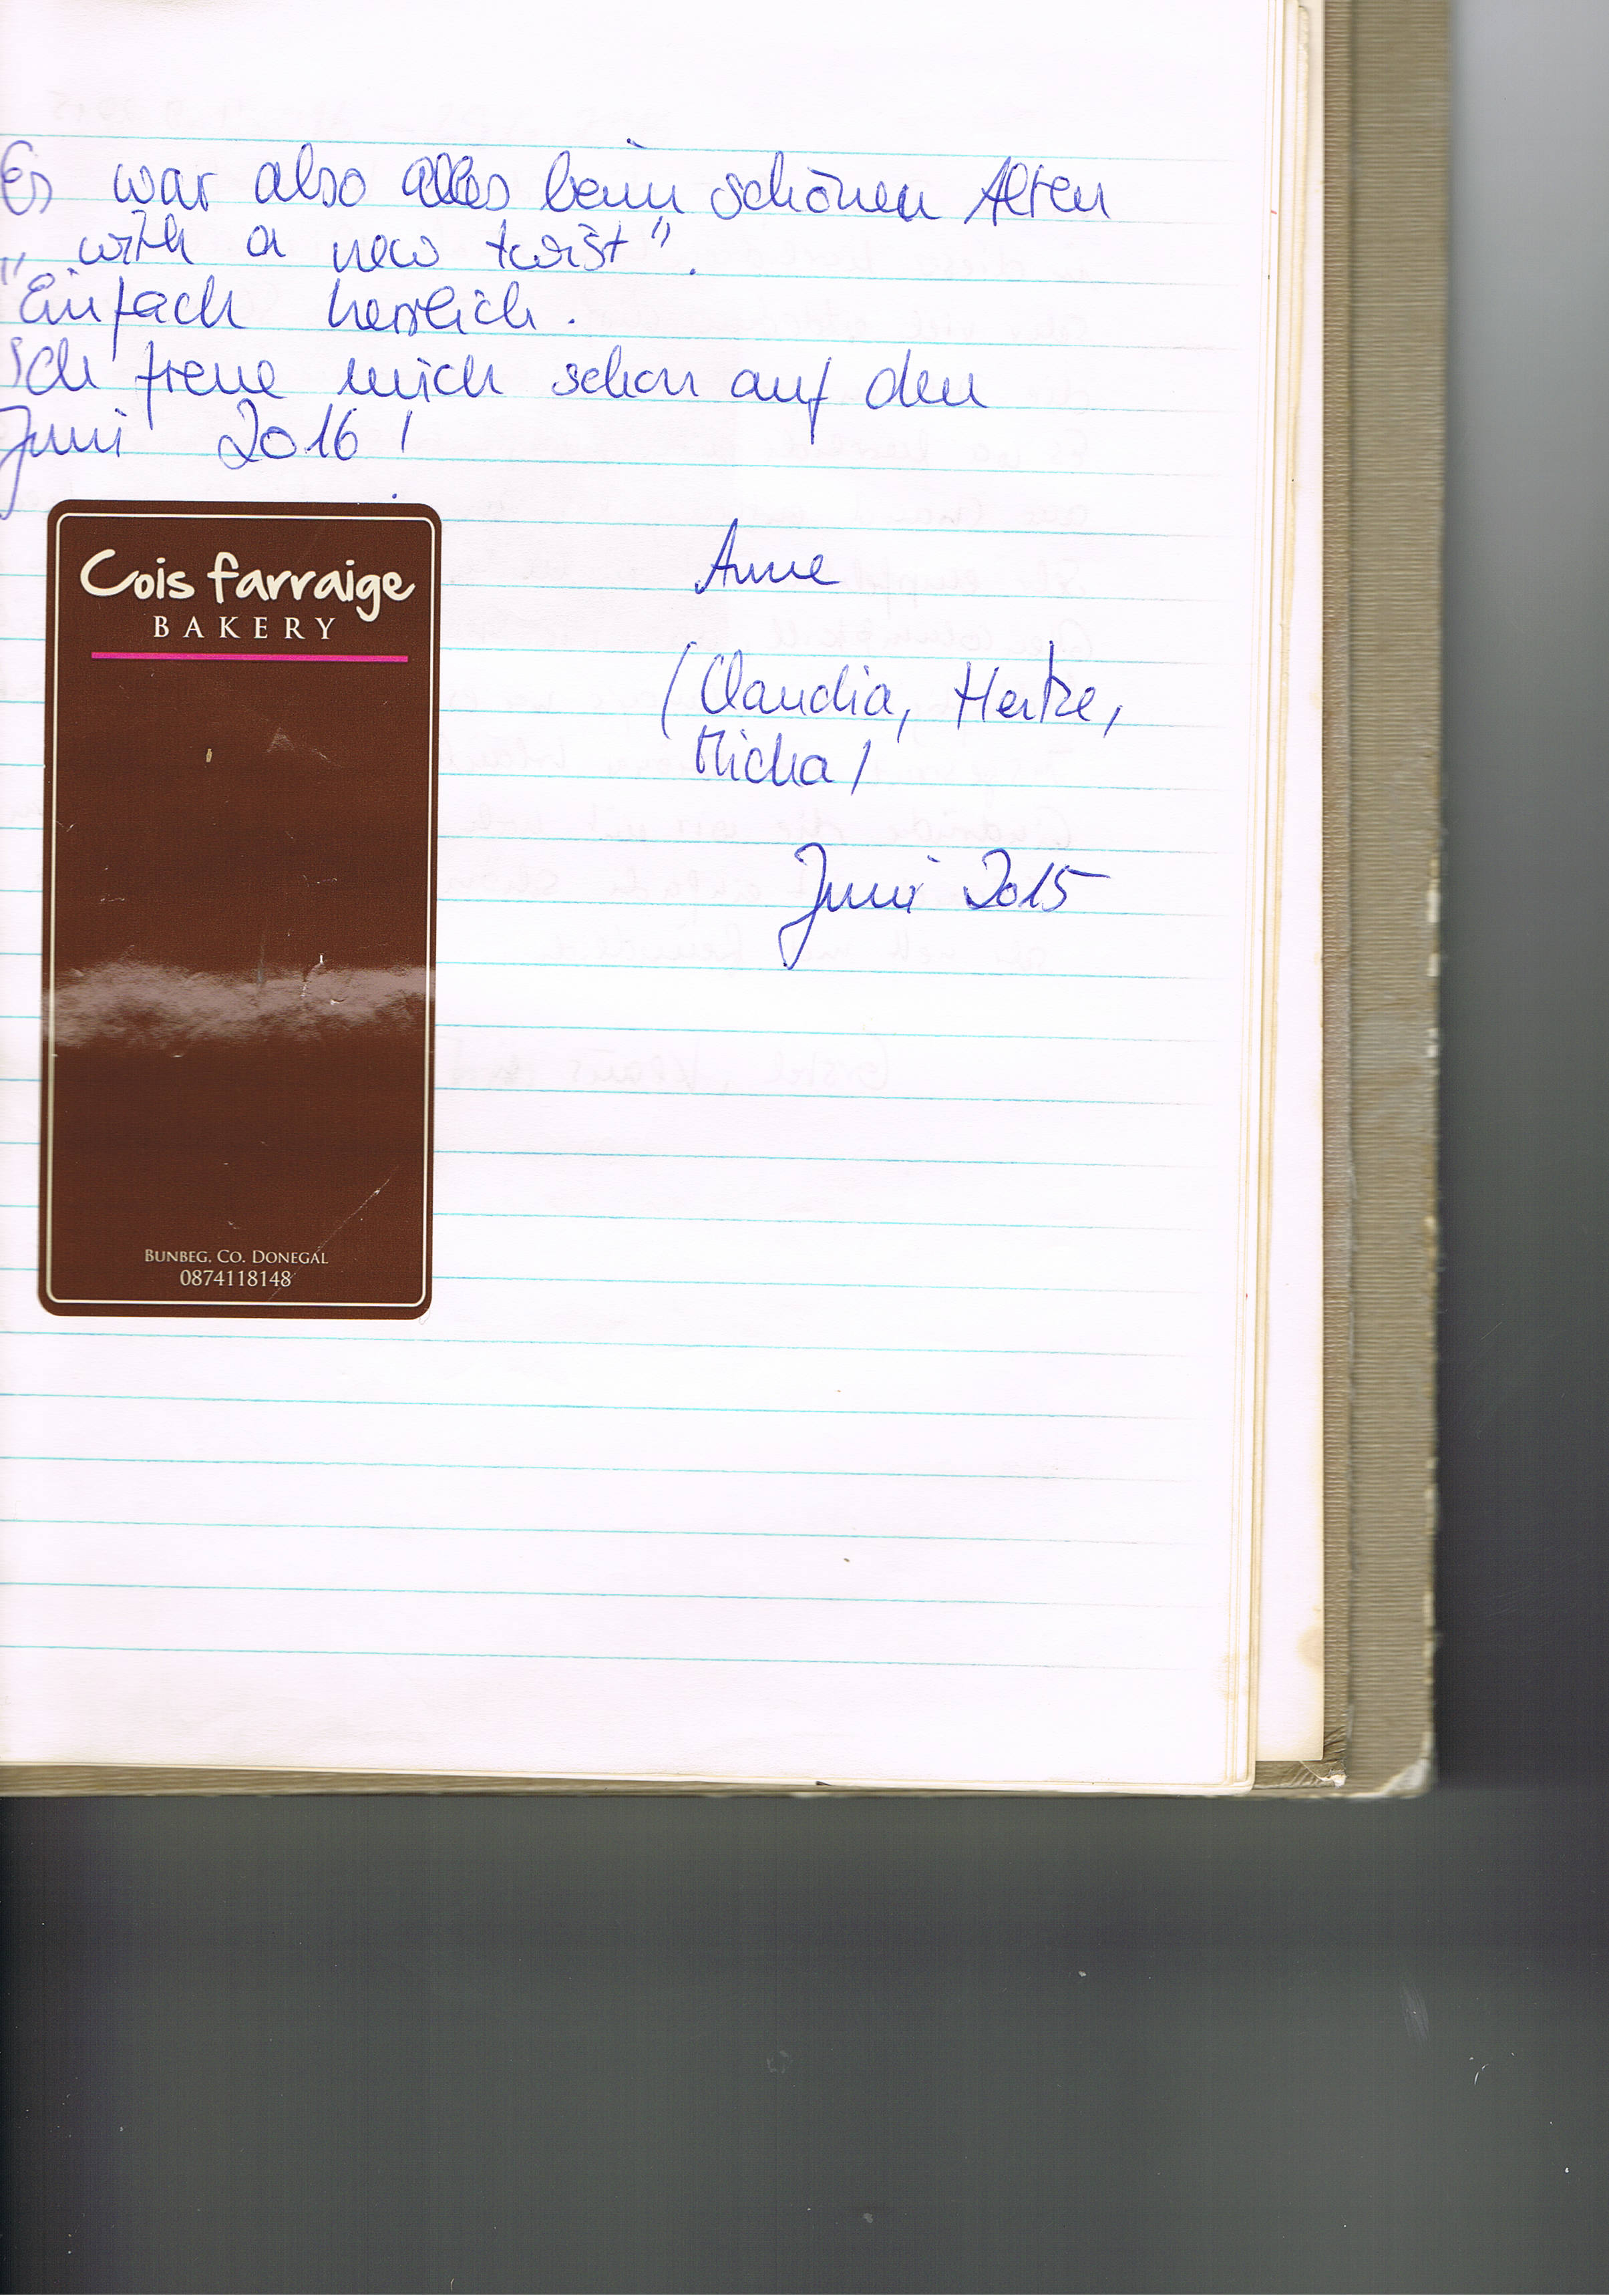 Es war also alles beim schönen Alten
„with a new twist".
Einfach herrlich.
Ich freue mich schon auf den
Juni 2016!
Cois farraige
BAKERY
BUNBEG, CO. DONEGAL
0874118148
Anne
(Claudia, Heike,
Micha)
Juni 2015